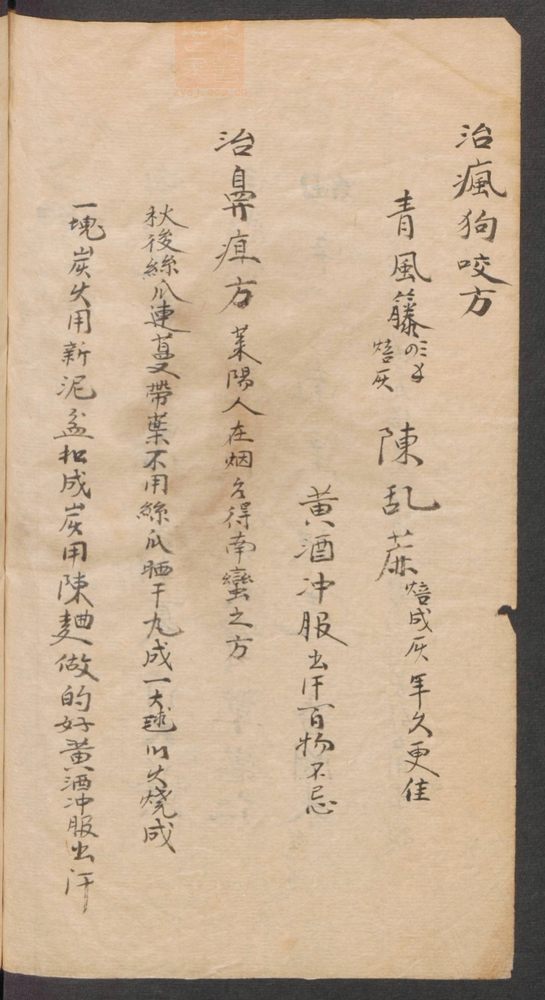 治瘋狗咬方
青風籐 焙灰 陳乱蔴 焙成灰年久更佳
黄酒冲服出汗百物不忌
治鼻疽方 莱陽人在烟台得南蠻之方
秋後絲瓜連蔓帶葉不用絲瓜晒干丸成一大毬以火燒成
一塊炭火用新泥盆扣成炭用陳麯做的好黄酒冲服出汗